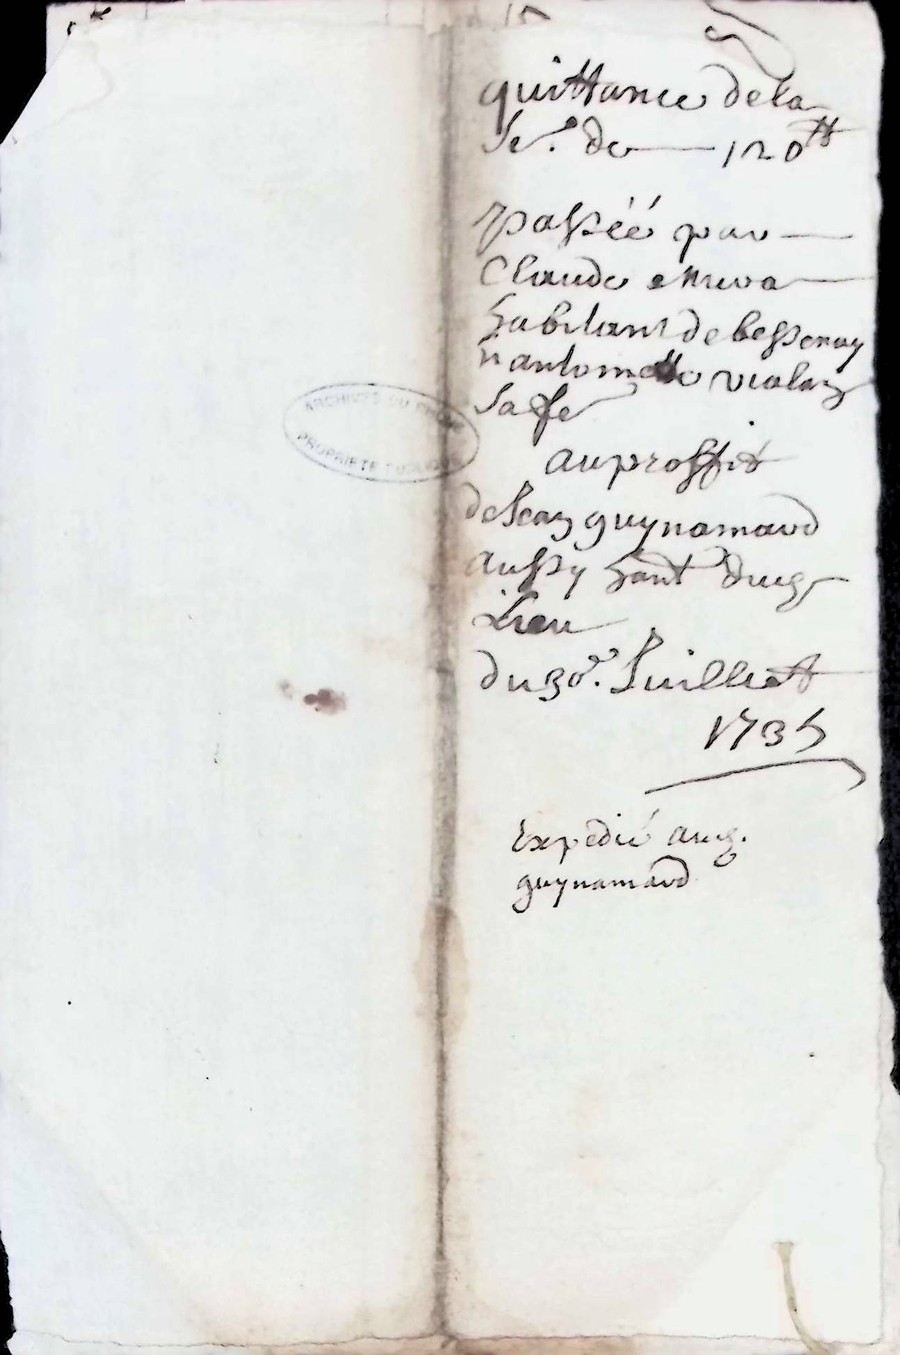 quittance dela
Se.e de — 120tt
passéé par —
Claude
habitant de bessenay
sa fe
au proffit
de Jean guynamard
aussy hant dud
Lieu
du 30e. Juilliet
1735
Expedié aud.
guynamard
ARCHIVES DU RHONE
PROPRIETE PUBLIQUE